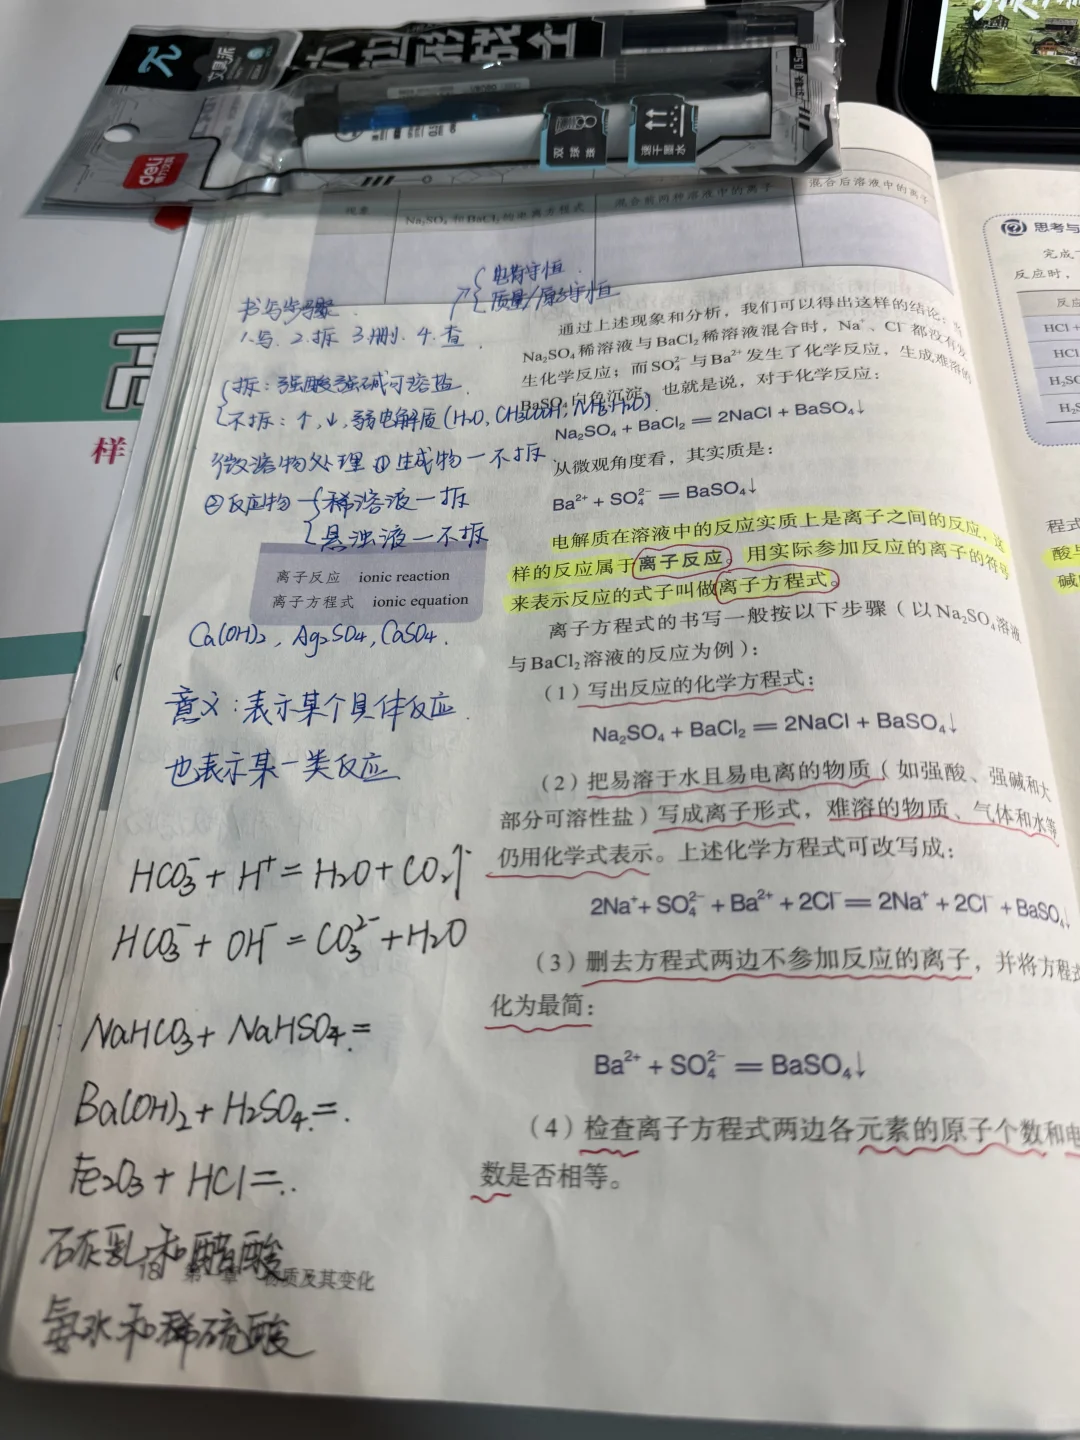 文具派
六边形战士
deli
双球珠
速干墨水
0.5mm
样
现象
Na₂SO₄ 和 BaCl₂ 的电离方程式
混合前两种溶液中的离子
混合后溶液中的离子
书写步骤
1.写. 2.拆 3.删. 4.查
电荷守恒
质量/原子守恒
拆：强酸强碱可溶盐
不拆：↑,↓,弱电解质(H₂O, CH₃COOH, NH₃·H₂O)
微溶物处理 ①生成物一不拆
②反应物
稀溶液一拆
悬浊液一不拆
离子反应 ionic reaction
离子方程式 ionic equation
Ca(OH)₂, Ag₂SO₄, CaSO₄.
意义：表示某个具体反应
也表示某一类反应
HCO₃⁻ + H⁺ = H₂O + CO₂↑
HCO₃⁻ + OH⁻ = CO₃²⁻ + H₂O
NaHCO₃ + NaHSO₄ =
Ba(OH)₂ + H₂SO₄ =
Fe₂O₃ + HCl =
石灰乳和醋酸
氨水和稀硫酸
通过上述现象和分析，我们可以得出这样的结论：当
Na₂SO₄稀溶液与BaCl₂稀溶液混合时，Na⁺、Cl⁻都没有发
生化学反应；而SO₄²⁻与Ba²⁺发生了化学反应，生成难溶的
BaSO₄白色沉淀。也就是说，对于化学反应：
Na₂SO₄ + BaCl₂ = 2NaCl + BaSO₄↓
从微观角度看，其实质是：
Ba²⁺ + SO₄²⁻ = BaSO₄↓
电解质在溶液中的反应实质上是离子之间的反应，这
样的反应属于离子反应。用实际参加反应的离子的符号
来表示反应的式子叫做离子方程式。
离子方程式的书写一般按以下步骤（以Na₂SO₄溶液
与BaCl₂溶液的反应为例）：
（1）写出反应的化学方程式：
Na₂SO₄ + BaCl₂ = 2NaCl + BaSO₄↓
（2）把易溶于水且易电离的物质（如强酸、强碱和大
部分可溶性盐）写成离子形式，难溶的物质、气体和水等
仍用化学式表示。上述化学方程式可改写成：
2Na⁺ + SO₄²⁻ + Ba²⁺ + 2Cl⁻ = 2Na⁺ + 2Cl⁻ + BaSO₄↓
（3）删去方程式两边不参加反应的离子，并将方程式
化为最简：
Ba²⁺ + SO₄²⁻ = BaSO₄↓
（4）检查离子方程式两边各元素的原子个数和电
数是否相等。
18 第一章 物质及其变化
思考与
完成下
反应时，
反应
HCl +
HCl
H₂SO
H₂S
程式
酸与
碱